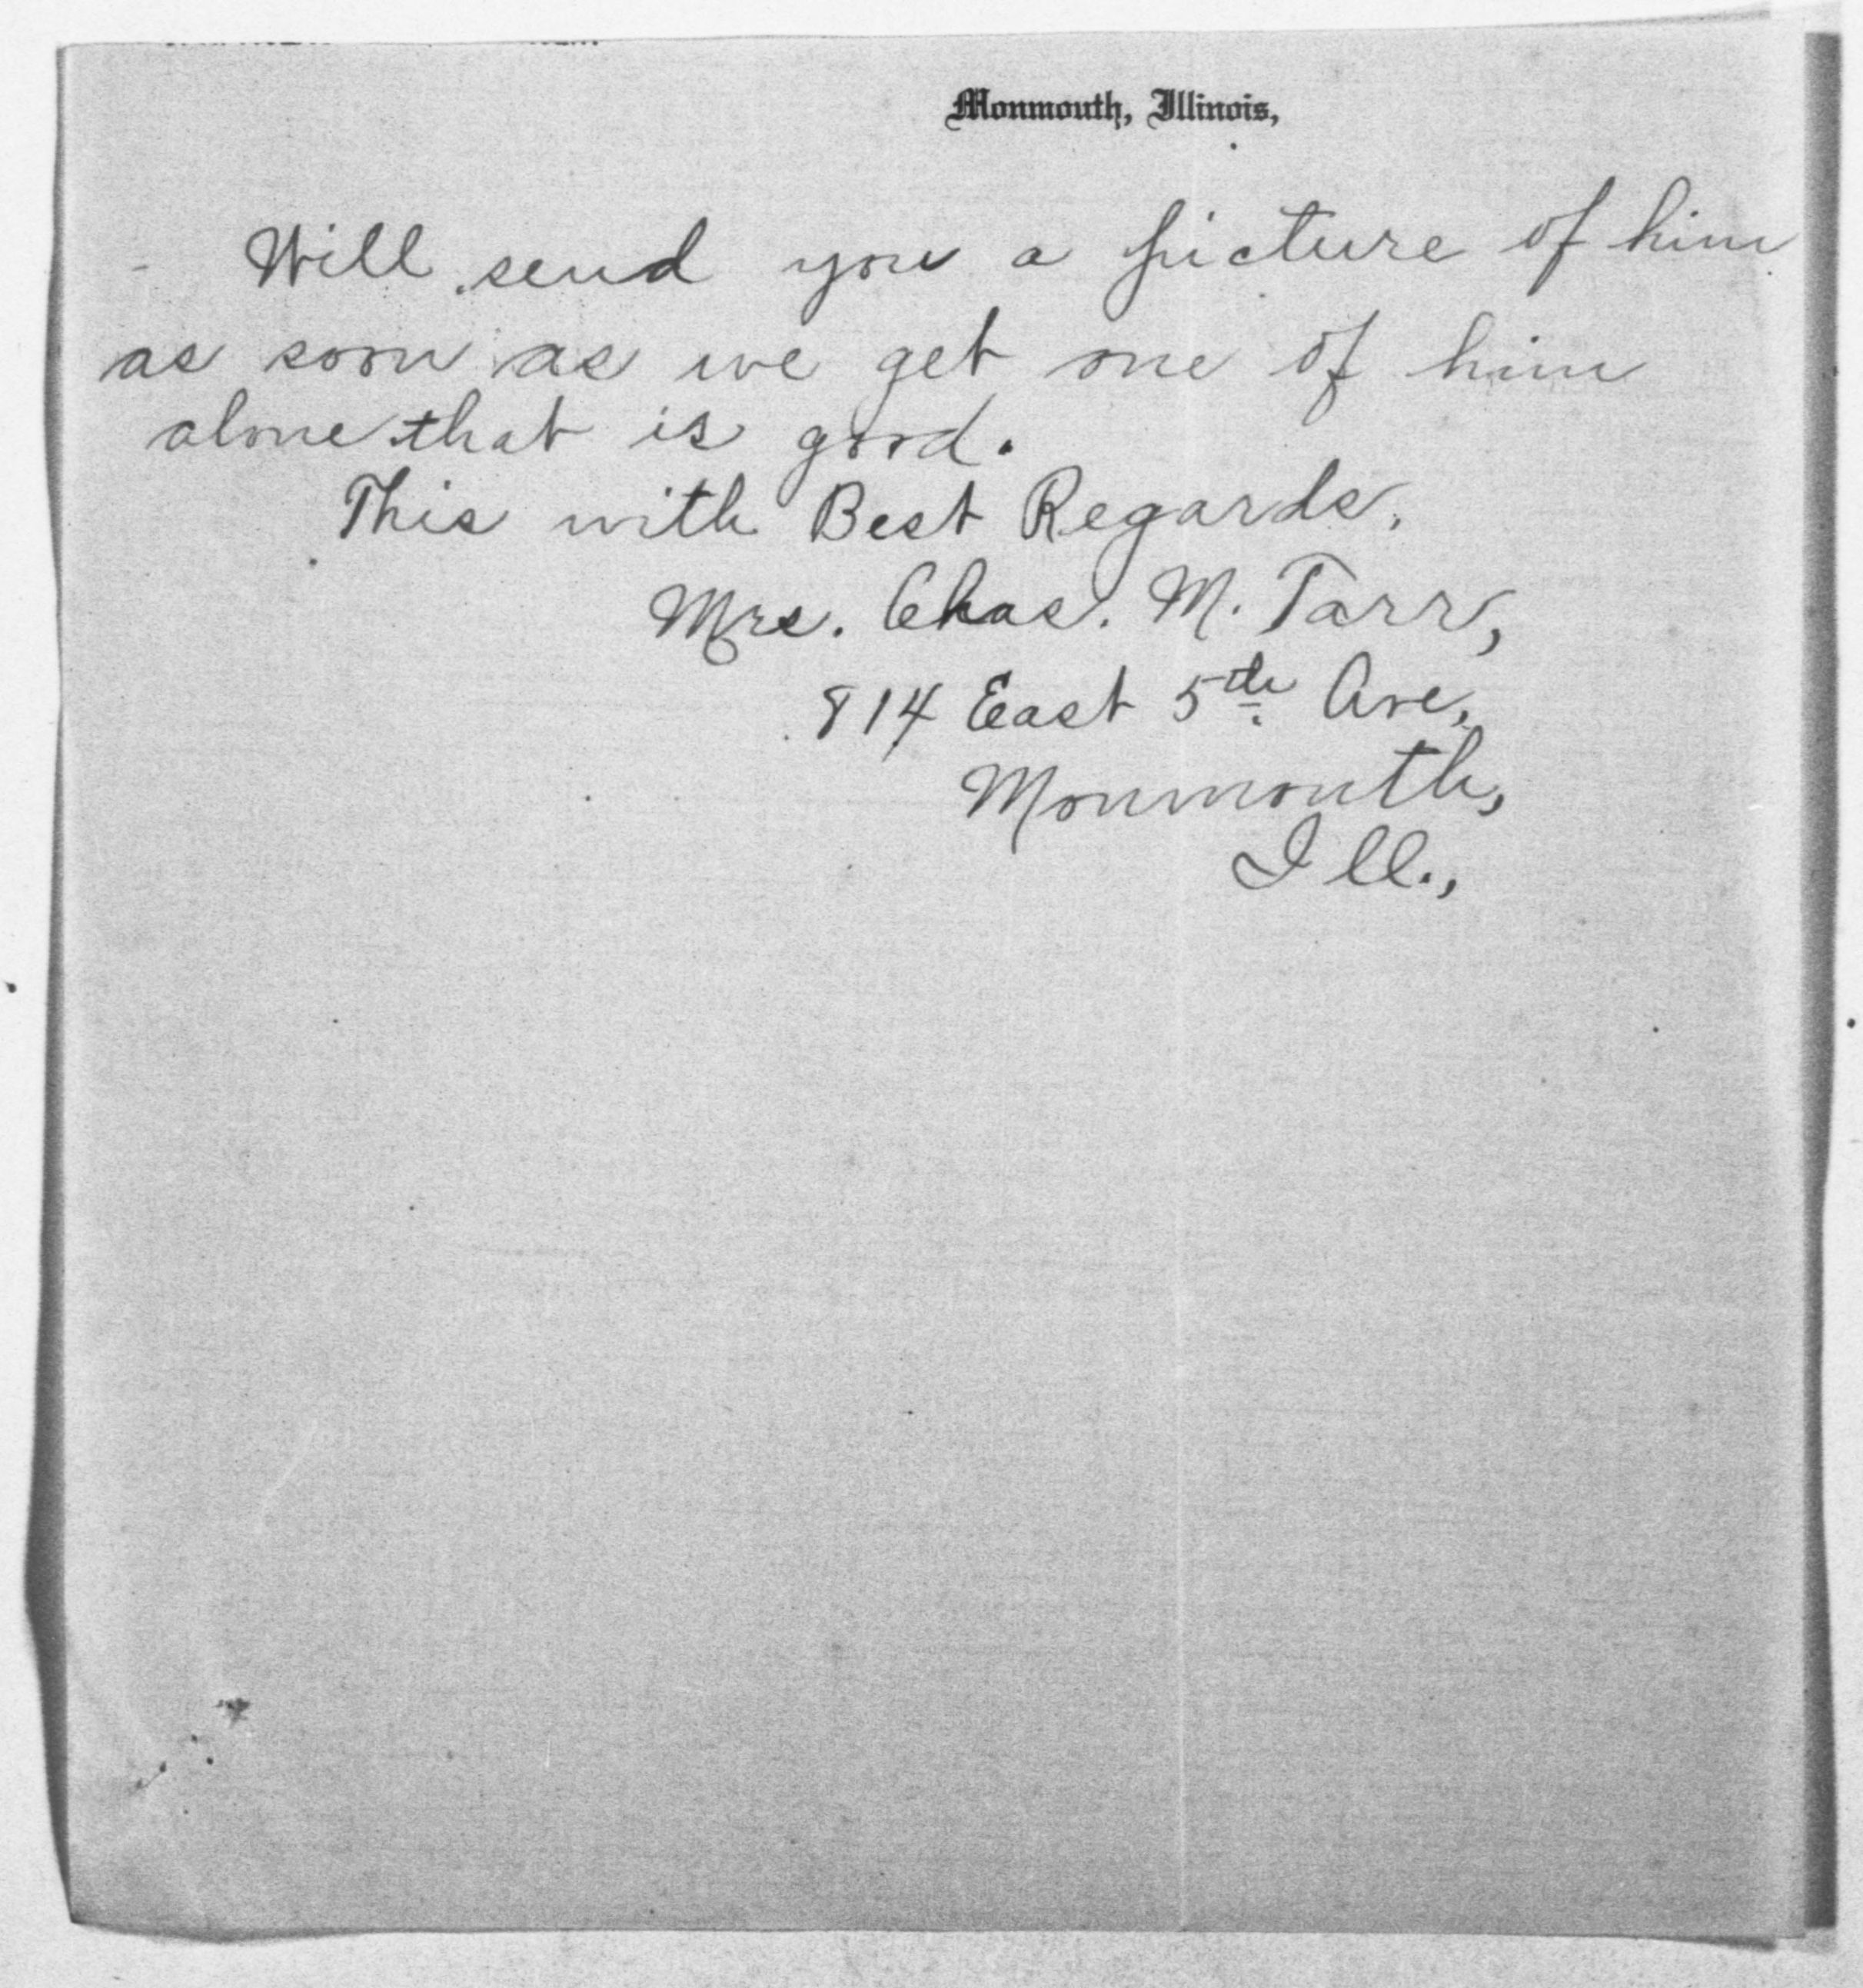 Monmouth, Illinois,
Will send you a picture of him
as soon as we get one of him
alone that is good.
This with Best Regards.
Mrs. Chas. M. Tarr,
814 East 5th Ave,
Monmouth,
Ill.,